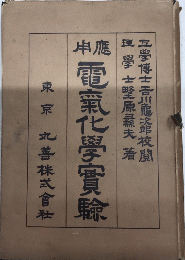 工學博士吉川龜次郎校閲
理學士 原夫 著
應用
電氣化學實驗
東京 丸善株式會社